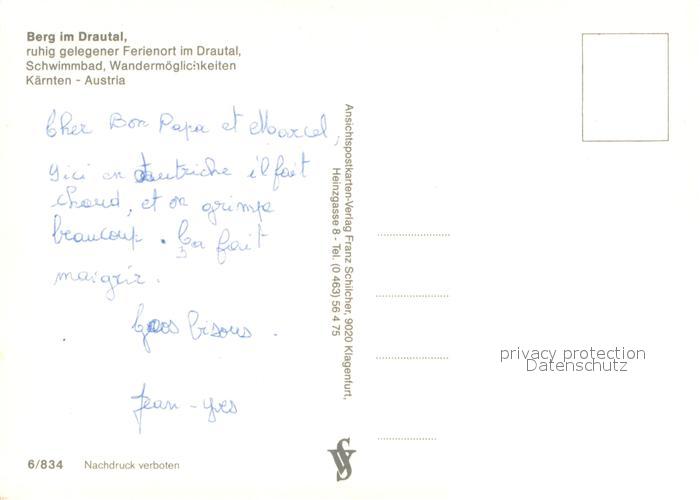 Berg im Drautal,
ruhig gelegener Ferienort im Drautal,
Schwimmbad, Wandermöglichkeiten
Kärnten - Austria
Cher Bon Papa et Marcel,
Ici en Autriche il fait
chaud, et on grimpe
beaucoup. Ça fait
maigrir.
Gros bisous.
Jean-yves
6/834 Nachdruck verboten
Ansichtspostkarten-Verlag Franz Schilcher, 9020 Klagenfurt,
Heinzgasse 8 - Tel. (0 463) 56 4 75
privacy protection
Datenschutz